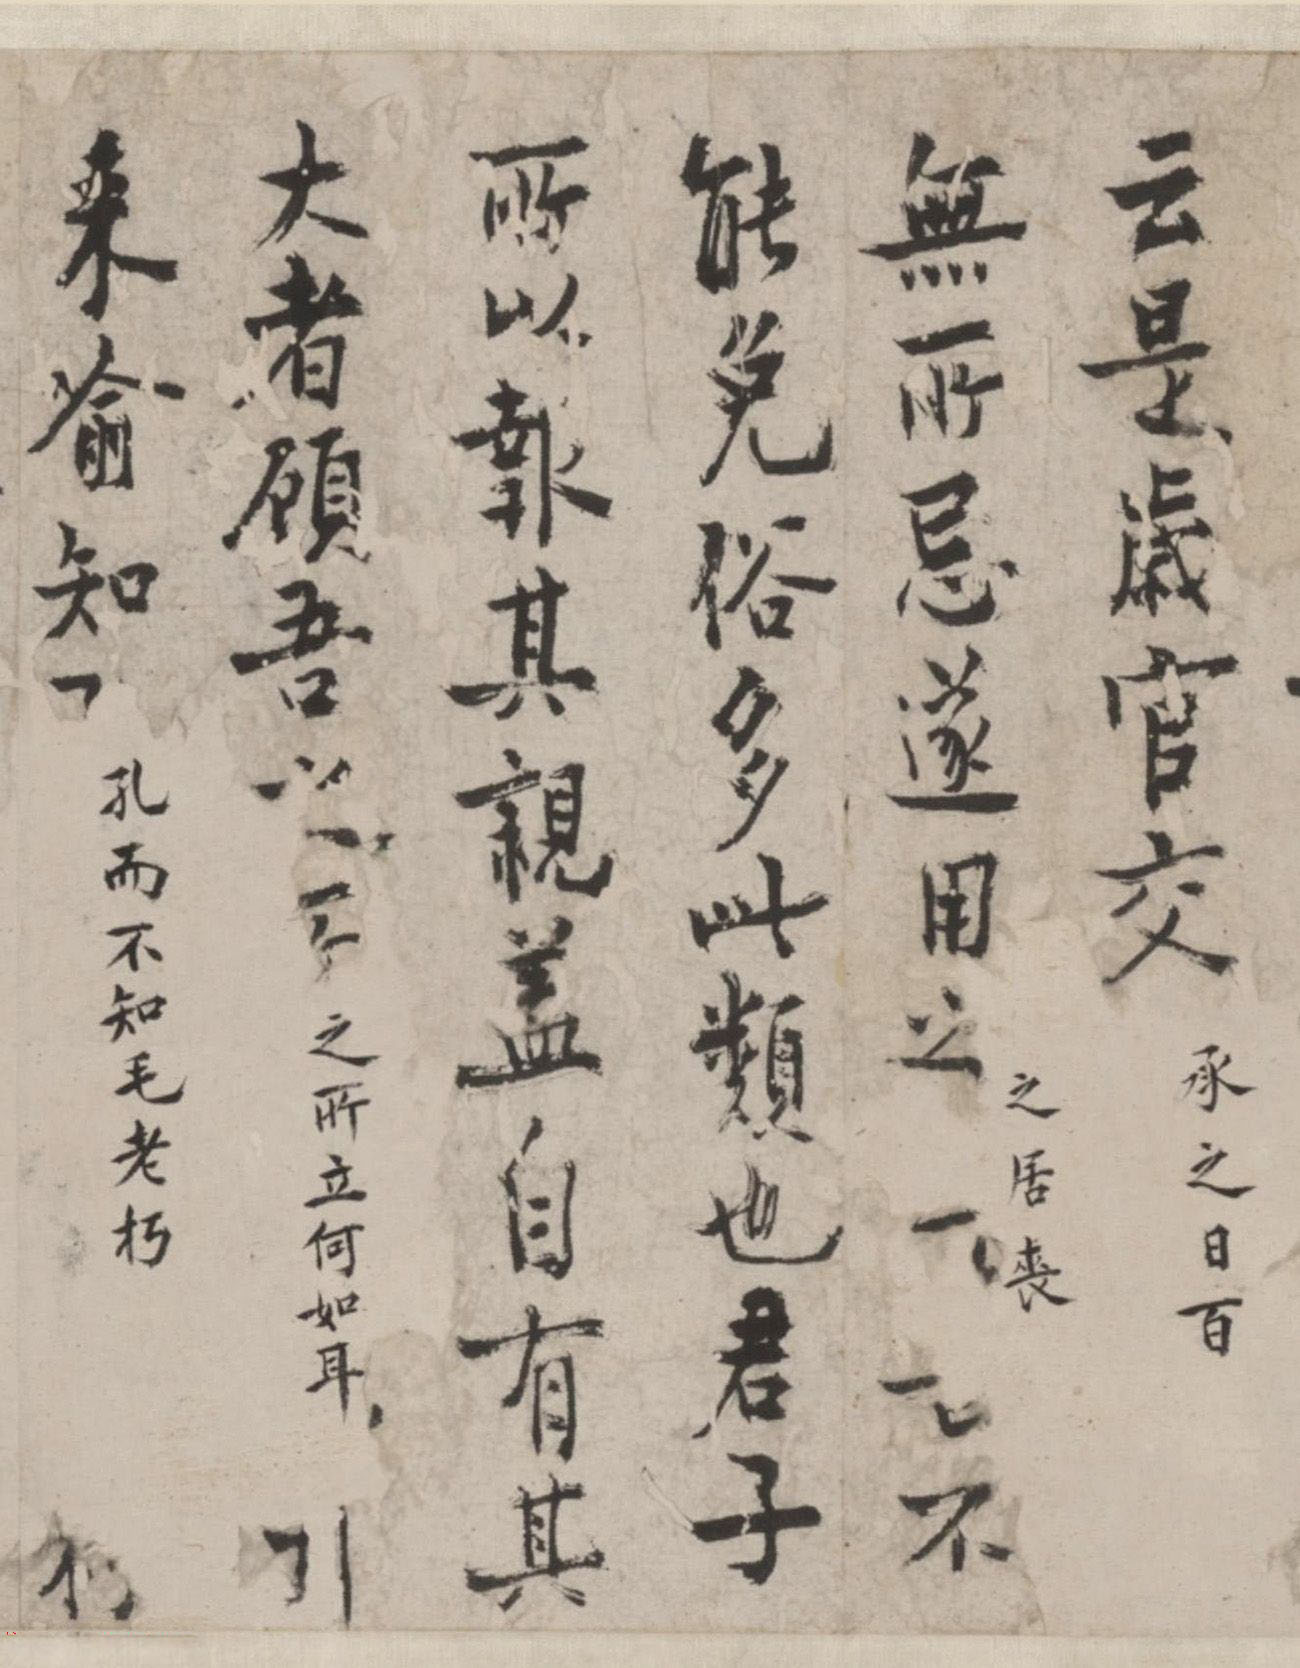 云是歲官交承之日百
無所忌遂用之之居喪不
能免俗多此類也君子
所以報其親盖自有其
大者顧吾之所立何如耳引
来喻知孔而不知毛老朽